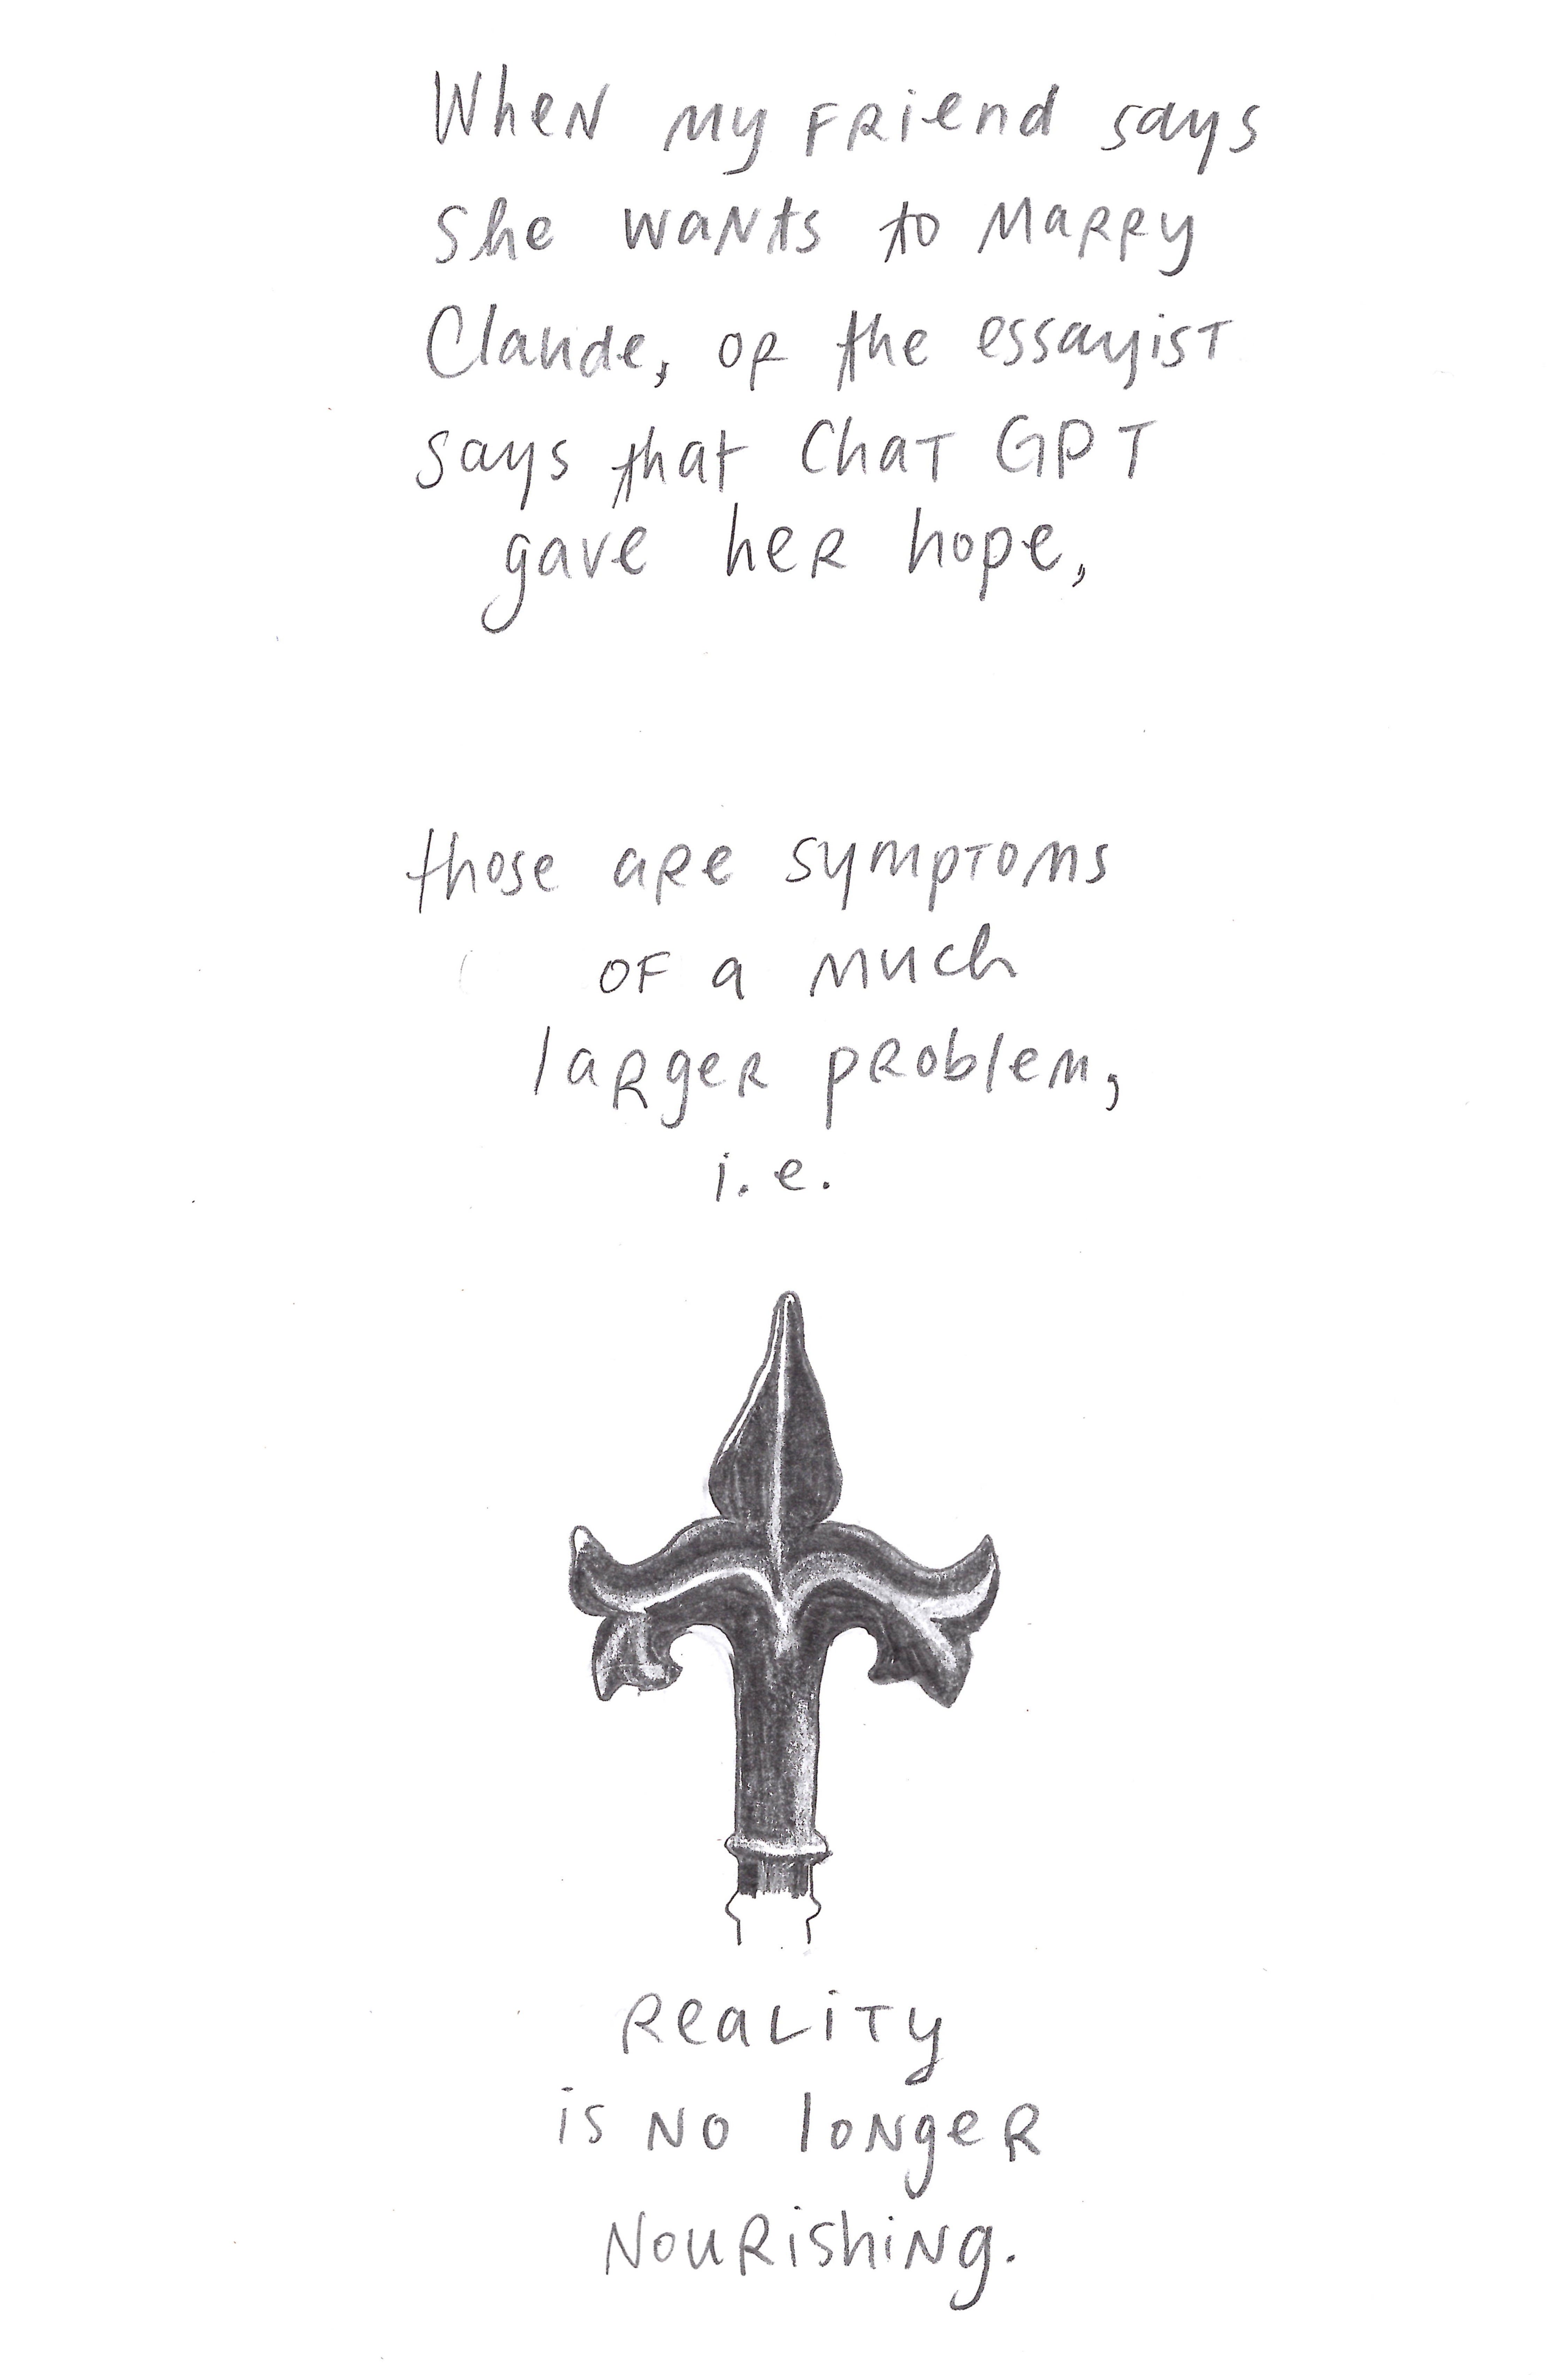 When my friend says
she wants to marry
Claude, or the essayist
says that Chat GPT
gave her hope,
those are symptoms
of a much
larger problem,
i.e.
Reality
is no longer
nourishing.